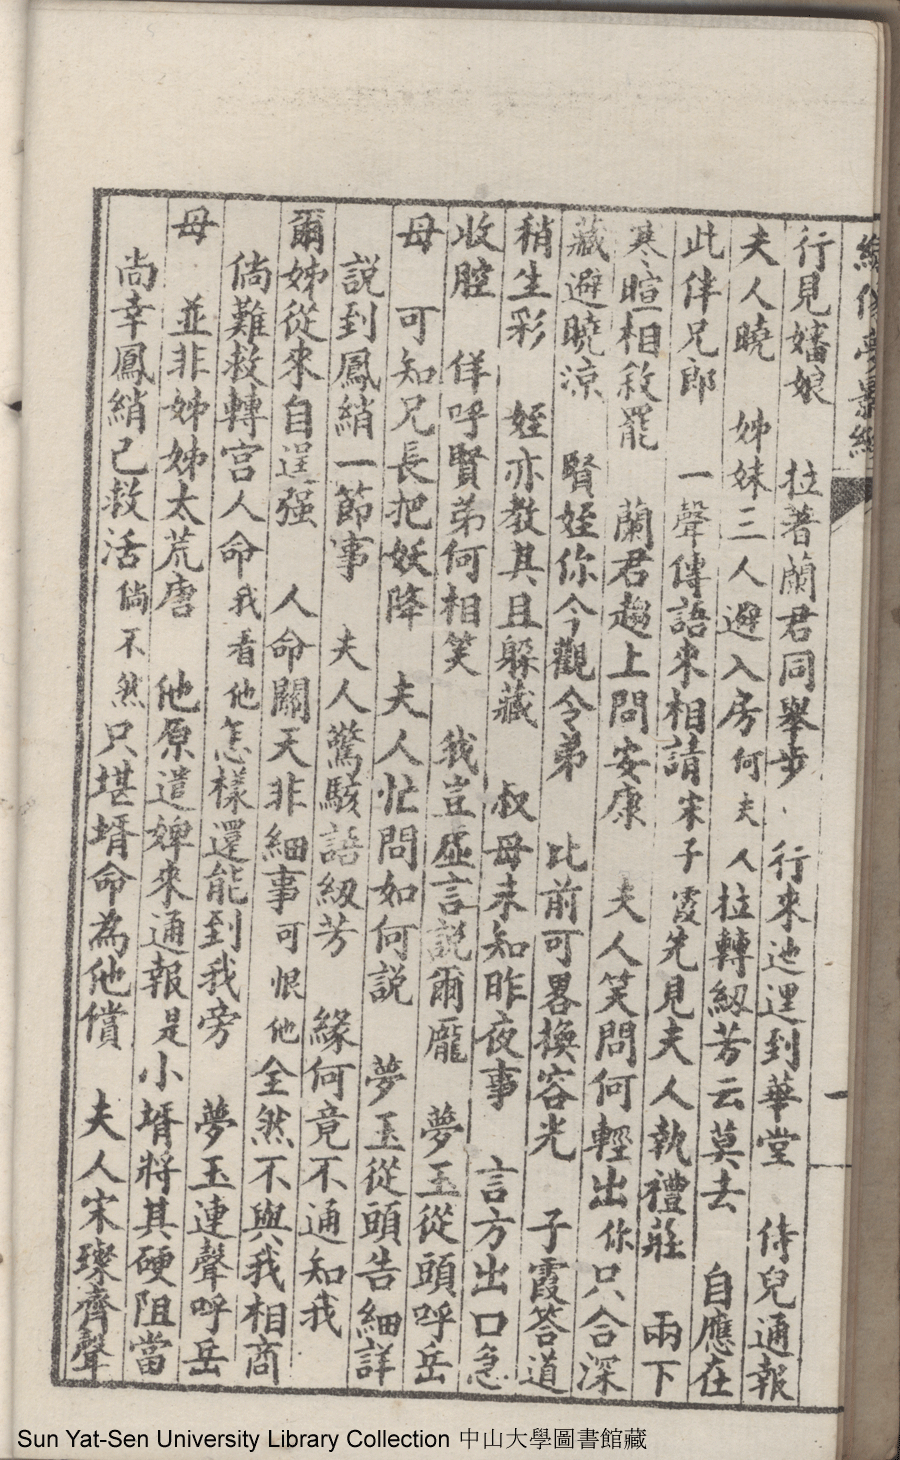 夢影緣
一
行見嬸娘　拉著蘭君同舉步　行來迆逕到華堂　侍兒通報
夫人曉　姊妹三人避入房何夫人拉轉紉芳云莫去　自應在
此伴兄郎　一聲傳語來相請宋子霞先見夫人執禮莊　兩下
寒暄相敘罷　蘭君趨上問安康　夫人笑問何輕出你只合深
藏避曉涼　賢姪你今觀令弟　比前可畧換容光　子霞答道
稍生彩　姪亦教其且躲藏　叔母未知昨夜事　言方出口急
收腔　佯呼賢弟何相笑　我豈虛言説爾龐　夢玉從頭呼岳
母　可知兄長把妖降　夫人忙問如何説　夢玉從頭告細詳
説到鳳綃一節事　夫人驚駭語紉芳　緣何竟不通知我
爾姊從來自逞强　人命關天非細事可恨他全然不與我相商
倘難救轉宫人命我看他怎樣還能到我旁　夢玉連聲呼岳
母　並非姊姊太荒唐　他原遣婢來通報是小壻將其硬阻當
尚幸鳳綃已救活倘不然只堪壻命為他償　夫人宋璨齊聲
Sun Yat-Sen University Library Collection 中山大學圖書館藏